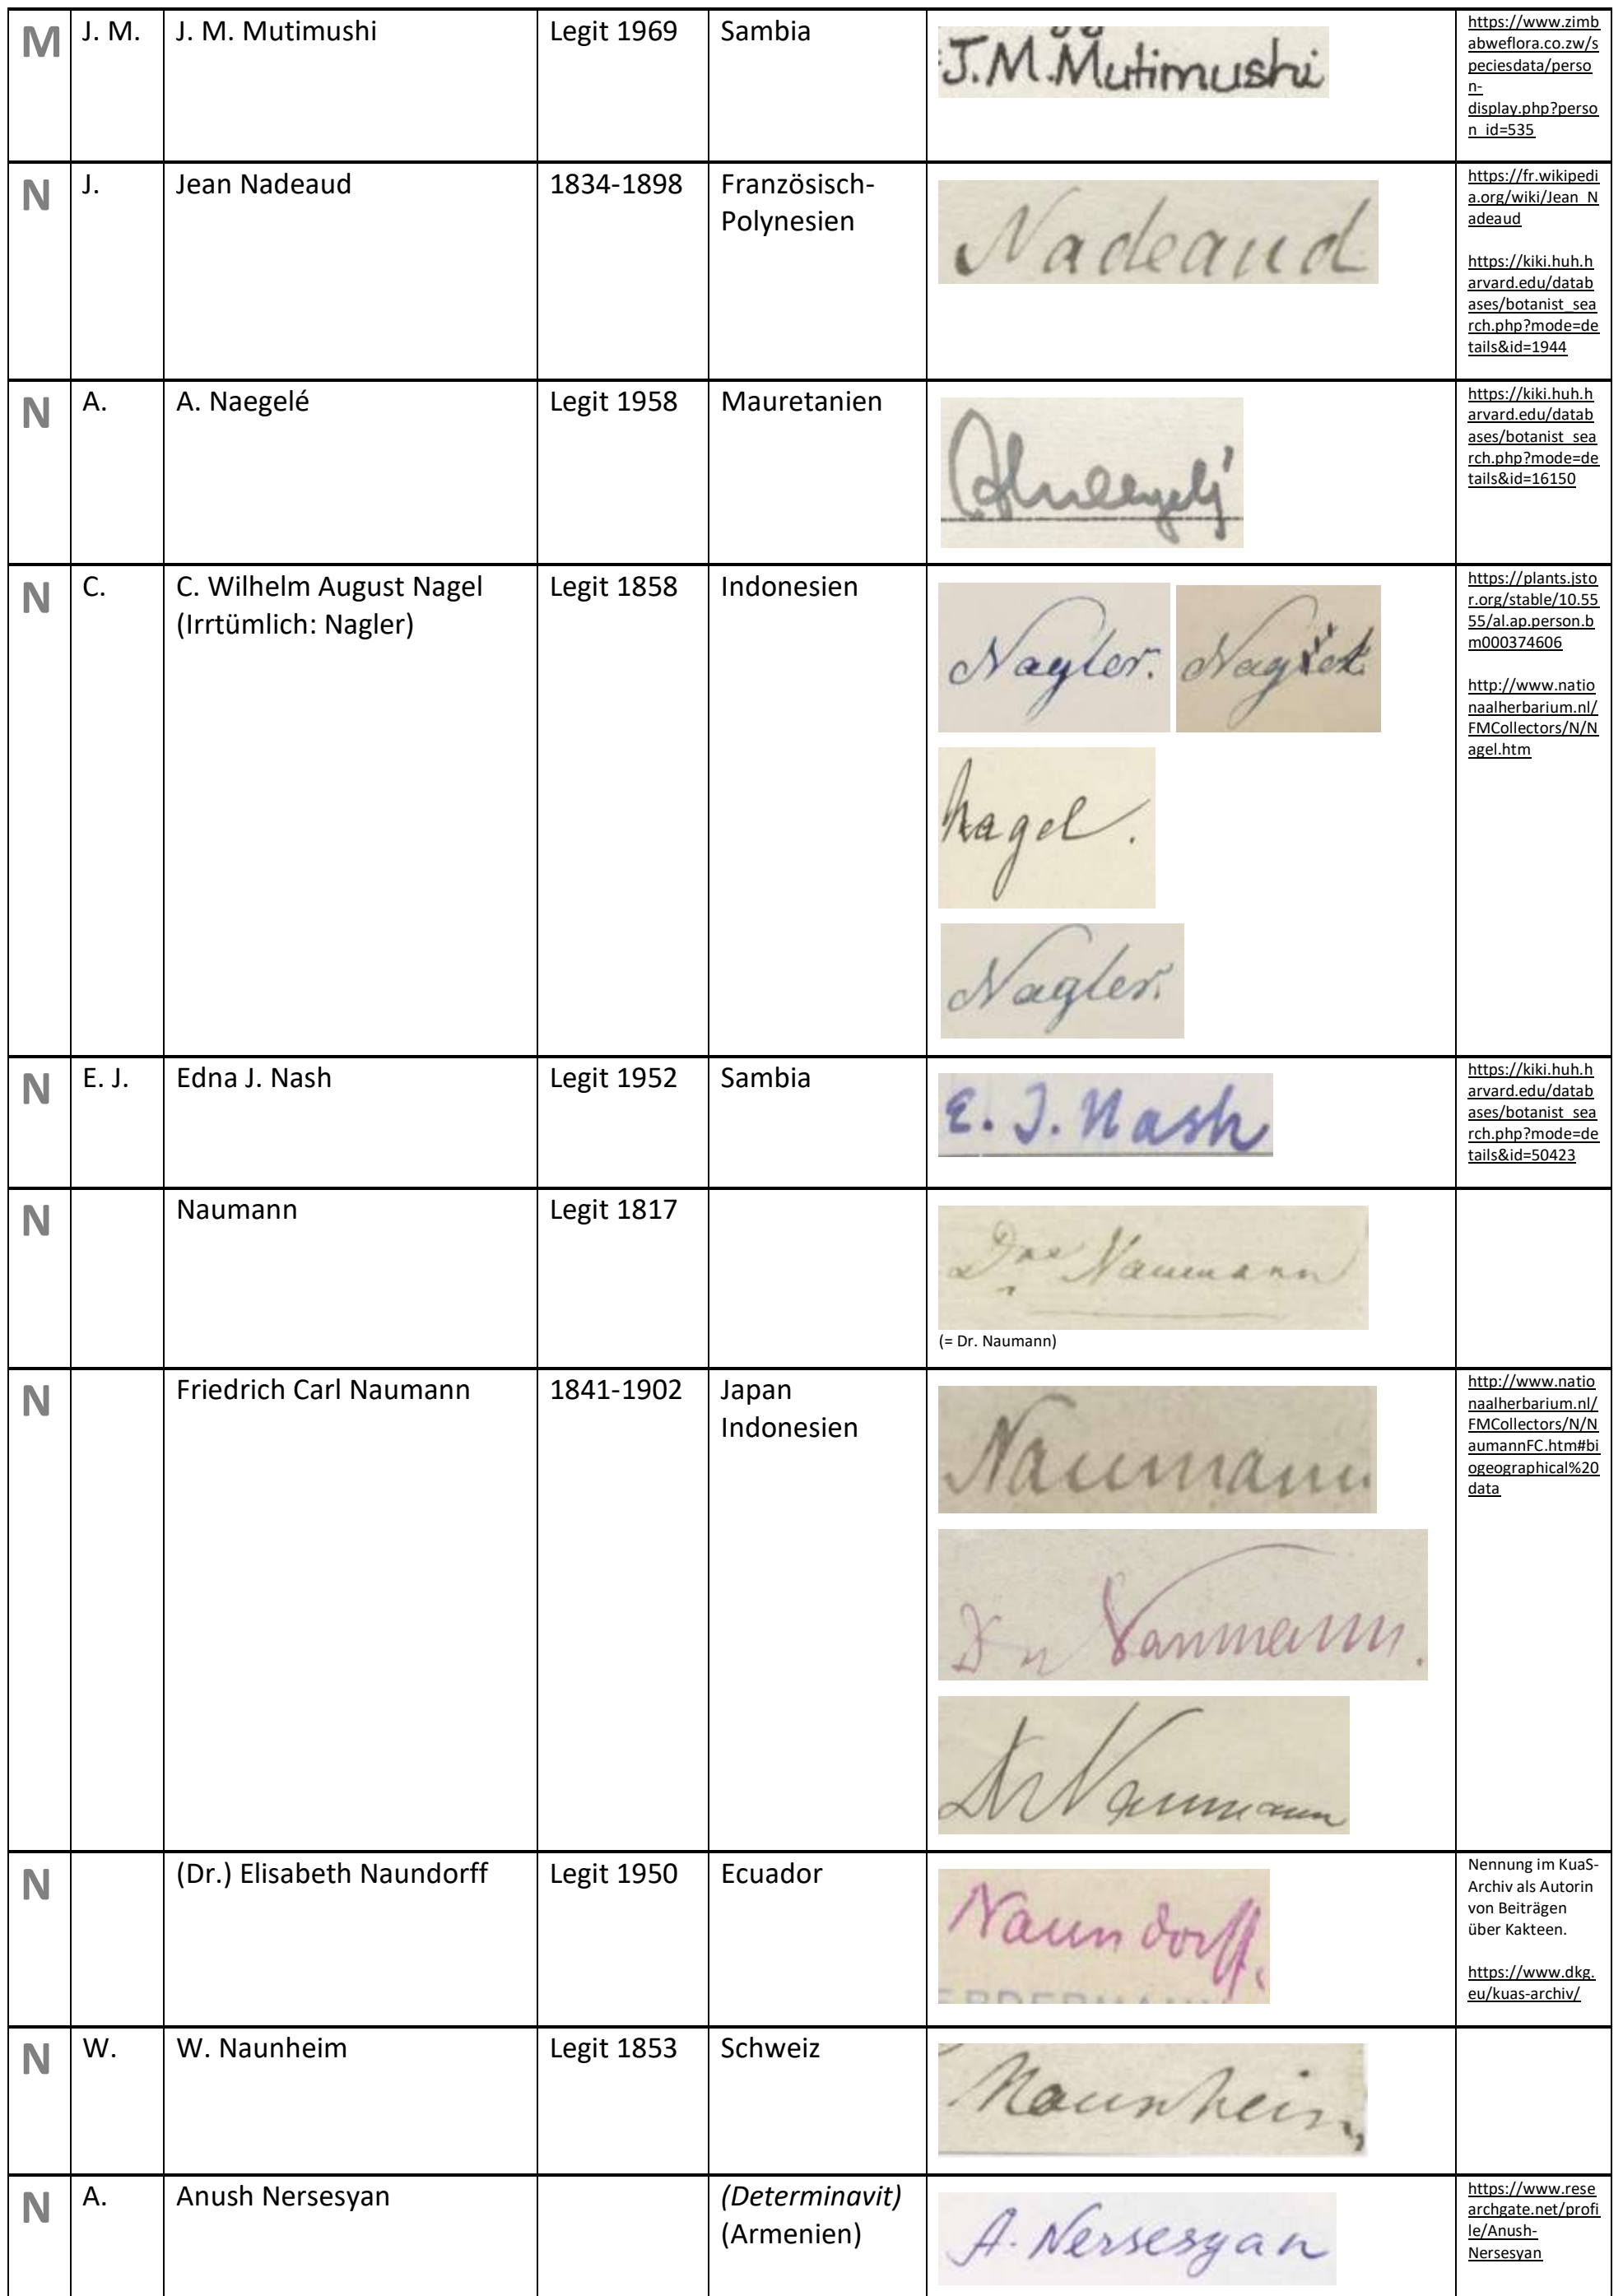 M
J. M.
J. M. Mutimushi
Legit 1969
Sambia
J.M.Mutimushi
https://www.zimb
abweflora.co.zw/s
peciesdata/perso
n-
display.php?perso
n_id=535
N
J.
Jean Nadeaud
1834-1898
Französisch-
Polynesien
Nadeaud
https://fr.wikipedi
a.org/wiki/Jean_N
adeaud
https://kiki.huh.h
arvard.edu/datab
ases/botanist_sea
rch.php?mode=de
tails&id=1944
N
A.
A. Naegelé
Legit 1958
Mauretanien
https://kiki.huh.h
arvard.edu/datab
ases/botanist_sea
rch.php?mode=de
tails&id=16150
N
C.
C. Wilhelm August Nagel
(Irrtümlich: Nagler)
Legit 1858
Indonesien
Nagler.
Nagel.
Nagler.
https://plants.jsto
r.org/stable/10.55
55/al.ap.person.b
m000374606
http://www.natio
naalherbarium.nl/
FMCollectors/N/N
agel.htm
N
E. J.
Edna J. Nash
Legit 1952
Sambia
E. J. Nash
https://kiki.huh.h
arvard.edu/datab
ases/botanist_sea
rch.php?mode=de
tails&id=50423
N
Naumann
Legit 1817
Naumann
(= Dr. Naumann)
N
Friedrich Carl Naumann
1841-1902
Japan
Indonesien
Naumann
Dr Naumann.
Dr Naumann
http://www.natio
naalherbarium.nl/
FMCollectors/N/N
aumannFC.htm#bi
ogeographical%20
data
N
(Dr.) Elisabeth Naundorff
Legit 1950
Ecuador
Naundorff.
Nennung im KuaS-
Archiv als Autorin
von Beiträgen
über Kakteen.
https://www.dkg.
eu/kuas-archiv/
N
W.
W. Naunheim
Legit 1853
Schweiz
Naunheim
N
A.
Anush Nersesyan
(Determinavit)
(Armenien)
A. Nersesyan
https://www.rese
archgate.net/profi
le/Anush-
Nersesyan